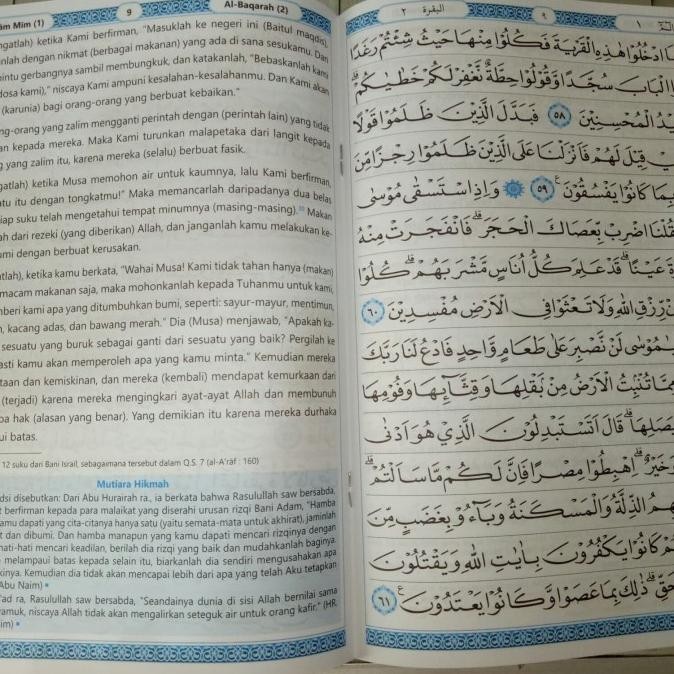 ām Mim (1) 9 Al-Baqarah (2)
ngatlah) ketika Kami berfirman, "Masuklah ke negeri ini (Baitul maqdis),
nlah dengan nikmat (berbagai makanan) yang ada di sana sesukamu. Dan
intu gerbangnya sambil membungkuk, dan katakanlah, "Bebaskanlah kami
dosa kami)," niscaya Kami ampuni kesalahan-kesalahanmu. Dan Kami akan
(karunia) bagi orang-orang yang berbuat kebaikan."
ng-orang yang zalim mengganti perintah dengan (perintah lain) yang tidak
an kepada mereka. Maka Kami turunkan malapetaka dari langit kepada
g yang zalim itu, karena mereka (selalu) berbuat fasik.
gatlah) ketika Musa memohon air untuk kaumnya, lalu Kami berfirman,
atu itu dengan tongkatmu!" Maka memancarlah daripadanya dua belas
iap suku telah mengetahui tempat minumnya (masing-masing). Makan
ah dari rezeki (yang diberikan) Allah, dan janganlah kamu melakukan ke-
umi dengan berbuat kerusakan.
atlah), ketika kamu berkata, "Wahai Musa! Kami tidak tahan hanya (makan)
macam makanan saja, maka mohonkanlah kepada Tuhanmu untuk kami,
mberi kami apa yang ditumbuhkan bumi, seperti: sayur-mayur, mentimun,
n, kacang adas, dan bawang merah." Dia (Musa) menjawab, "Apakah ka-
sesuatu yang buruk sebagai ganti dari sesuatu yang baik? Pergilah ke
asti kamu akan memperoleh apa yang kamu minta." Kemudian mereka
taan dan kemiskinan, dan mereka (kembali) mendapat kemurkaan dari
(terjadi) karena mereka mengingkari ayat-ayat Allah dan membunuh
pa hak (alasan yang benar). Yang demikian itu karena mereka durhaka
ui batas.
12 suku dari Bani Israil, sebagaimana tersebut dalam Q.S. 7 (al-A'rāf : 160)
Mutiara Hikmah
dsi disebutkan: Dari Abu Hurairah ra., ia berkata bahwa Rasulullah saw bersabda,
t berfirman kepada para malaikat yang diserahi urusan rizqi Bani Adam, "Hamba
kamu dapati yang cita-citanya hanya satu (yaitu semata-mata untuk akhirat), jaminlah
t dan dibumi. Dan hamba manapun yang kamu dapati mencari rizqinya dengan
hati-hati mencari keadilan, berilah dia rizqi yang baik dan mudahkanlah baginya.
melampaui batas kepada selain itu, biarkanlah dia sendiri mengusahakan apa
kinya. Kemudian dia tidak akan mencapai lebih dari apa yang telah Aku tetapkan
Abu Naim)
'ad ra, Rasulullah saw bersabda, "Seandainya dunia di sisi Allah bernilai sama
yamuk, niscaya Allah tidak akan mengalirkan seteguk air untuk orang kafir." (HR.
im)
البقرة ٢ ٩ ١
ا ادْخُلُوْا هٰذِهِ الْقَرْيَةَ فَكُلُوْا مِنْهَا حَيْثُ شِئْتُمْ رَغَدًا
الْبَابَ سُجَّدًا وَّقُوْلُوْا حِطَّةٌ نَّغْفِرْ لَكُمْ خَطٰيٰكُمْ ۗ
يْدُ الْمُحْسِنِيْنَ ٥٨ فَبَدَّلَ الَّذِيْنَ ظَلَمُوْا قَوْلًا
يْ قِيْلَ لَهُمْ فَاَنْزَلْنَا عَلَى الَّذِيْنَ ظَلَمُوْا رِجْزًا مِّنَ
بِمَا كَانُوْا يَفْسُقُوْنَ ࣖ ٥٩ ۞ وَاِذِ اسْتَسْقٰى مُوْسٰى
قُلْنَا اضْرِبْ بِّعَصَاكَ الْحَجَرَ ۗ فَانْفَجَرَتْ مِنْهُ
ةَ عَيْنًا ۗ قَدْ عَلِمَ كُلُّ اُنَاسٍ مَّشْرَبَهُمْ ۗ كُلُوْا
نْ رِّزْقِ اللّٰهِ وَلَا تَعْثَوْا فِى الْاَرْضِ مُفْسِدِيْنَ ٦٠
مُوْسٰى لَنْ نَّصْبِرَ عَلٰى طَعَامٍ وَّاحِدٍ فَادْعُ لَنَا رَبَّكَ
مِمَّا تُنْۢبِتُ الْاَرْضُ مِنْۢ بَقْلِهَا وَقِثَّاۤىِٕهَا وَفُوْمِهَا
بَصَلِهَا ۗ قَالَ اَتَسْتَبْدِلُوْنَ الَّذِيْ هُوَ اَدْنٰى
خَيْرٌ ۗ اِهْبِطُوْا مِصْرًا فَاِنَّ لَكُمْ مَّا سَاَلْتُمْ ۗ
هِمُ الذِّلَّةُ وَالْمَسْكَنَةُ وَبَاۤءُوْ بِغَضَبٍ مِّنَ
هُمْ كَانُوْا يَكْفُرُوْنَ بِاٰيٰتِ اللّٰهِ وَيَقْتُلُوْنَ
حَقِّ ۗ ذٰلِكَ بِمَا عَصَوْا وَّكَانُوْا يَعْتَدُوْنَ ࣖ ٦١